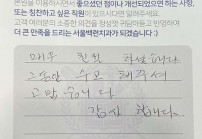 본원을 이용하시면서 좋으셨던 점이나 개선되었으면 하는 사항,
또는 칭찬하고 싶은 직원이 있으시다면 알려주세요.
고객 여러분의 소중한 의견을 항상 귀 기울여 듣고 반영하여
더 큰 만족을 드리는 서울백련치과가 되겠습니다 :)
매우 친절 하셨습니다
그동안 수고 해주셔서
고맙습니다
감사 합니다.